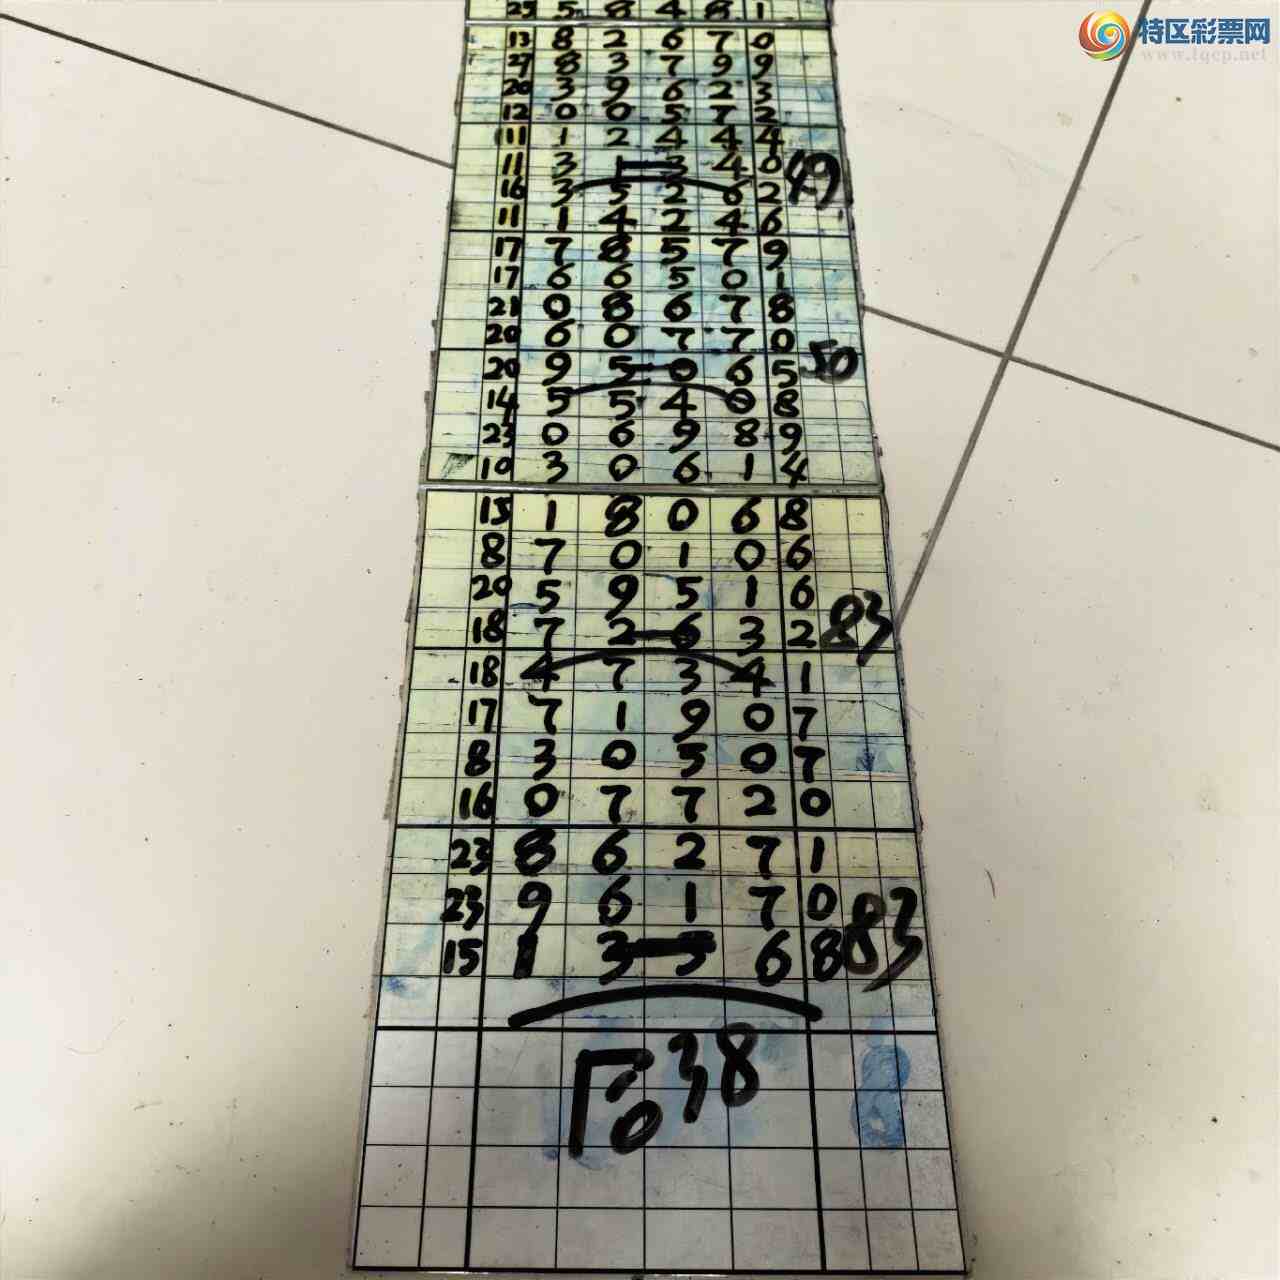 特区彩票网
www.tqcp.net
25 5 8 4 8 1
13 8 2 6 7 0
27 8 3 7 9 9
20 3 9 6 2 3
12 0 0 5 7 2
11 1 2 4 4 4
11 3 1 3 4 0 49
16 3 5 2 6 2
11 1 4 2 4 6
17 7 8 5 7 9
17 6 6 5 0 1
21 0 8 6 7 8
20 6 0 7 7 0
20 9 5 0 6 5 50
14 5 5 4 0 8
23 0 6 9 8 9
10 3 0 6 1 4
15 1 8 0 6 8
8 7 0 1 0 6
20 5 9 5 1 6
18 7 2 6 3 2 83
18 4 7 3 4 1
17 7 1 9 0 7
8 3 0 5 0 7
16 0 7 7 2 0
23 8 6 2 7 1
23 9 6 1 7 0
15 1 3 5 6 8 83
38